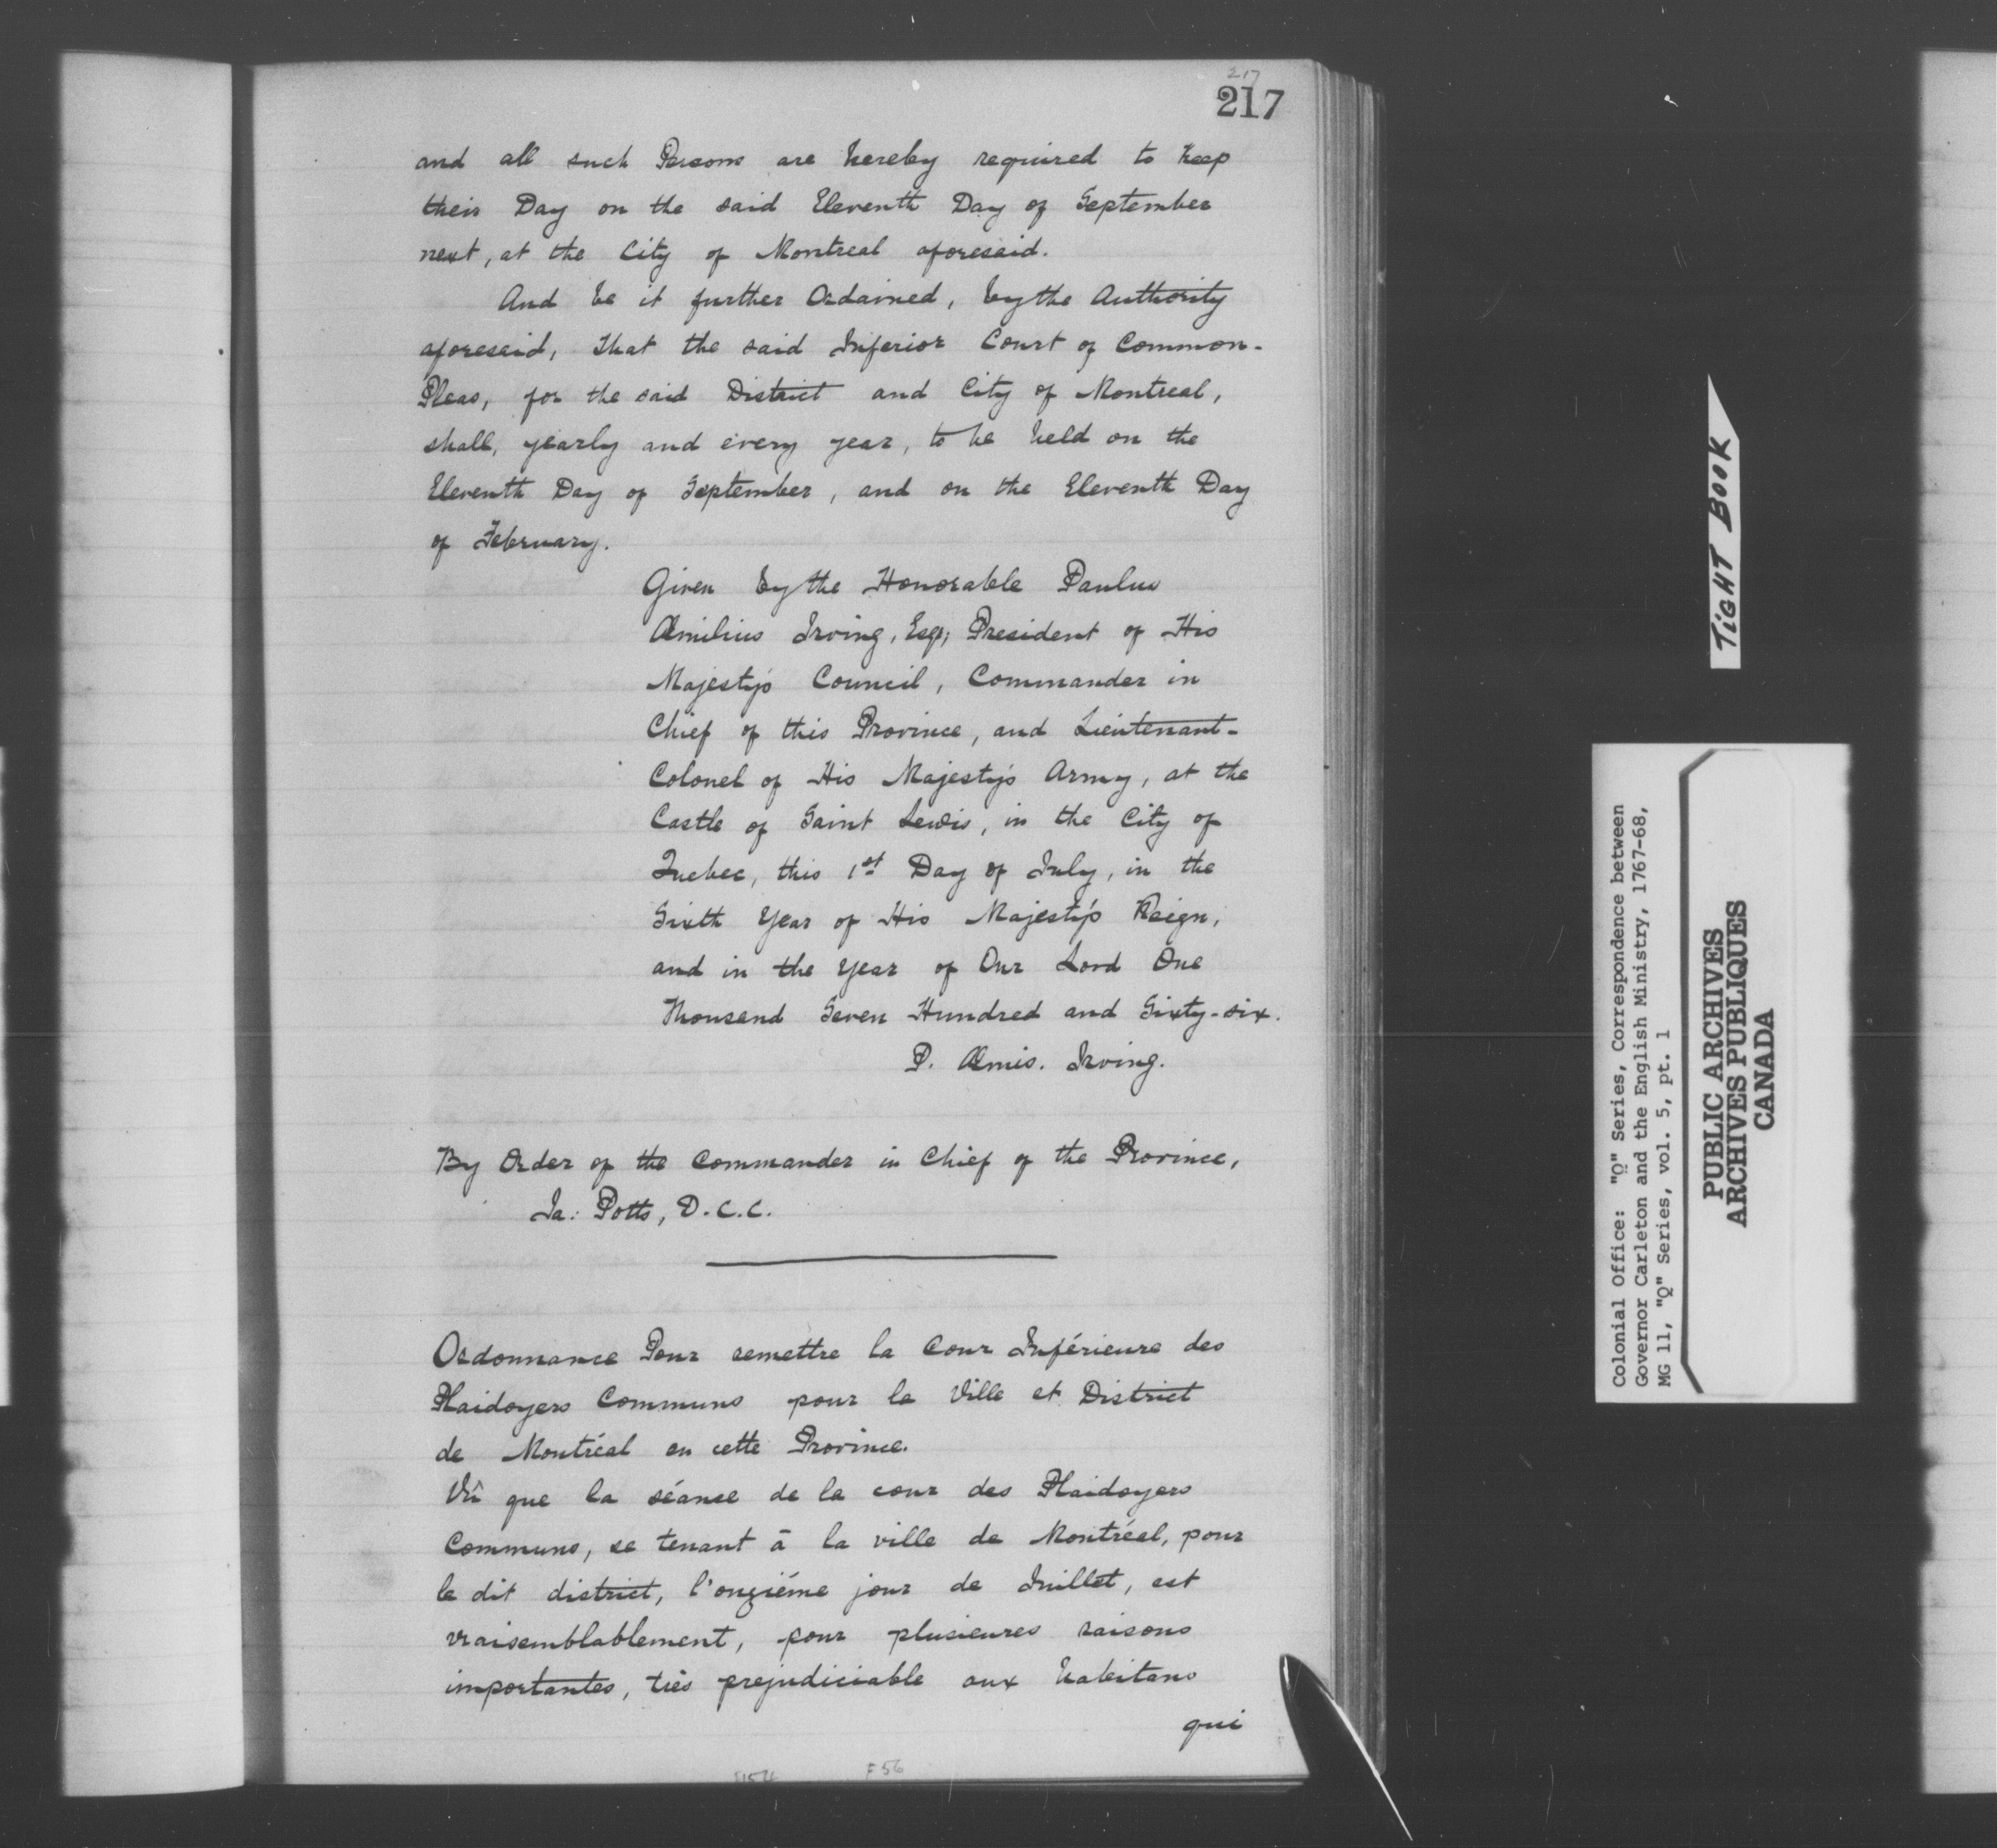 217
217
and all such Persons are hereby required to keep
their Day on the said Eleventh Day of September
next, at the City of Montreal aforesaid.
And be it further Ordained, by the Authority
aforesaid, that the said Inferior Court of Common-
Pleas, for the said District and City of Montreal,
shall, yearly and every year, to be held on the
Eleventh Day of September, and on the Eleventh Day
of February.
Given by the Honorable Paulus
Æmilius Irving, Esqr; President of His
Majesty's Council, Commander in
Chief of this Province, and Lieutenant-
Colonel of His Majesty's Army, at the
Castle of Saint Lewis, in the City of
Quebec, this 1st Day of July, in the
Sixth Year of His Majesty's Reign,
and in the Year of Our Lord One
Thousand Seven Hundred and Sixty-six.
P. Æmis. Irving.
By Order of the Commander in Chief of the Province,
Ja: Potts, D.C.C.
Ordonnance Pour remettre la Cour Inférieure des
Plaidoyers Communs pour la Ville et District
de Montréal en cette Province.
Vû que la séance de la cour des Plaidoyers
Communs, se tenant à la ville de Montréal, pour
le dit district, l'onziéme jour de Juillet, est
vraisemblablement, pour plusieures raisons
importantes, très prejudiciable aux habitans
qui
F 56
TIGHT BOOK
Colonial Office: "Q" Series, Correspondence between
Governor Carleton and the English Ministry, 1767-68,
MG 11, "Q" Series, vol. 5, pt. 1
PUBLIC ARCHIVES
ARCHIVES PUBLIQUES
CANADA